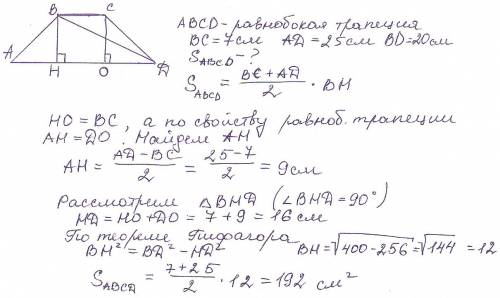 B C
A H O D
ABCD - равнобокая трапеция
BC = 7 см AD = 25 см BD = 20 см
S ABCD - ?
S ABCD = BC + AD / 2 · BH
HO = BC, а по свойству равноб. трапеции
AH = DO. Найдем AH
AH = AD - BC / 2 = 25 - 7 / 2 = 9 см
Рассмотрим △BHD (∠BHD = 90°)
HD = HO + DO = 7 + 9 = 16 см
По теореме Пифагора
BH² = BD² - HD² BH = √400 - 256 = √144 = 12
S ABCD = 7 + 25 / 2 · 12 = 192 см²